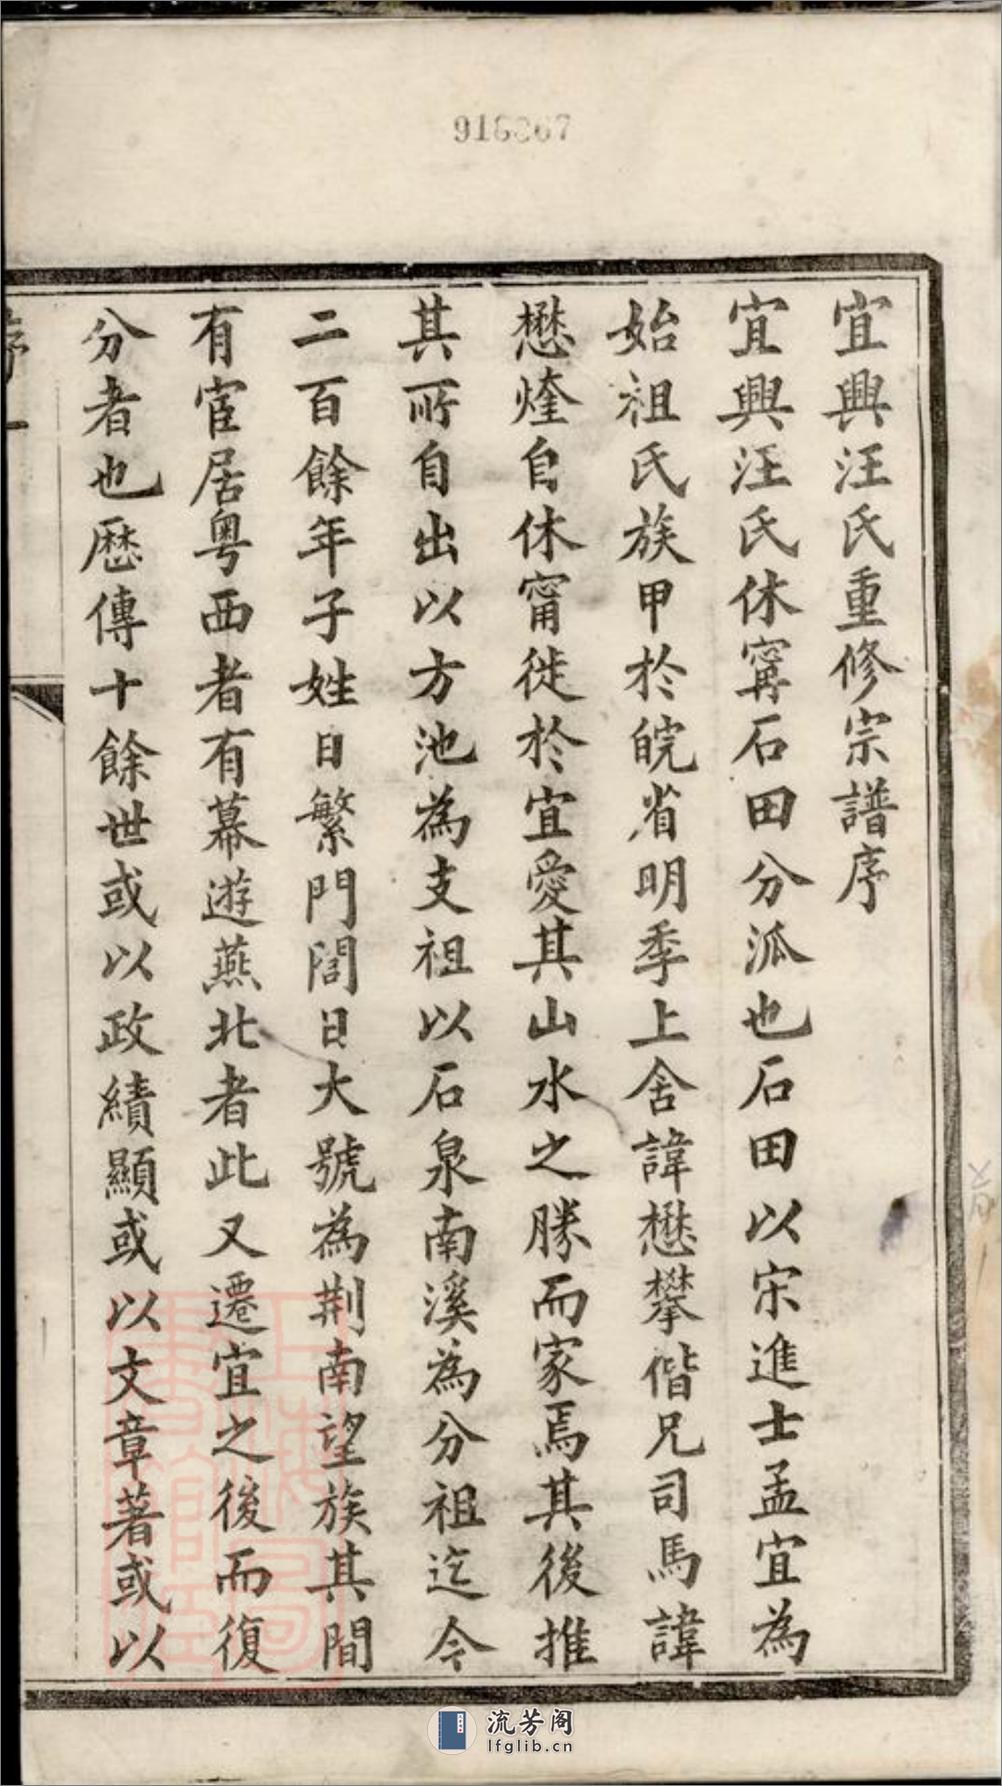 918867
宜興汪氏重修宗譜序
宜興汪氏休寗石田分派也石田以宋進士孟宜為
始祖氏族甲於皖省明季上舍諱懋攀偕兄司馬諱
懋煃自休甯徙於宜愛其山水之勝而家焉其後推
其所自出以方池為支祖以石泉南溪為分祖迄今
二百餘年子姓日繁門閭日大號為荆南望族其間
有宦居粤西者有幕遊燕北者此又遷宜之後而復
分者也歷傳十餘世或以政績顯或以文章著或以
流芳阁
lfglib.cn